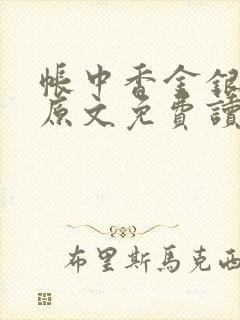 帳中香金銀
原文免費讀
布里斯馬克西